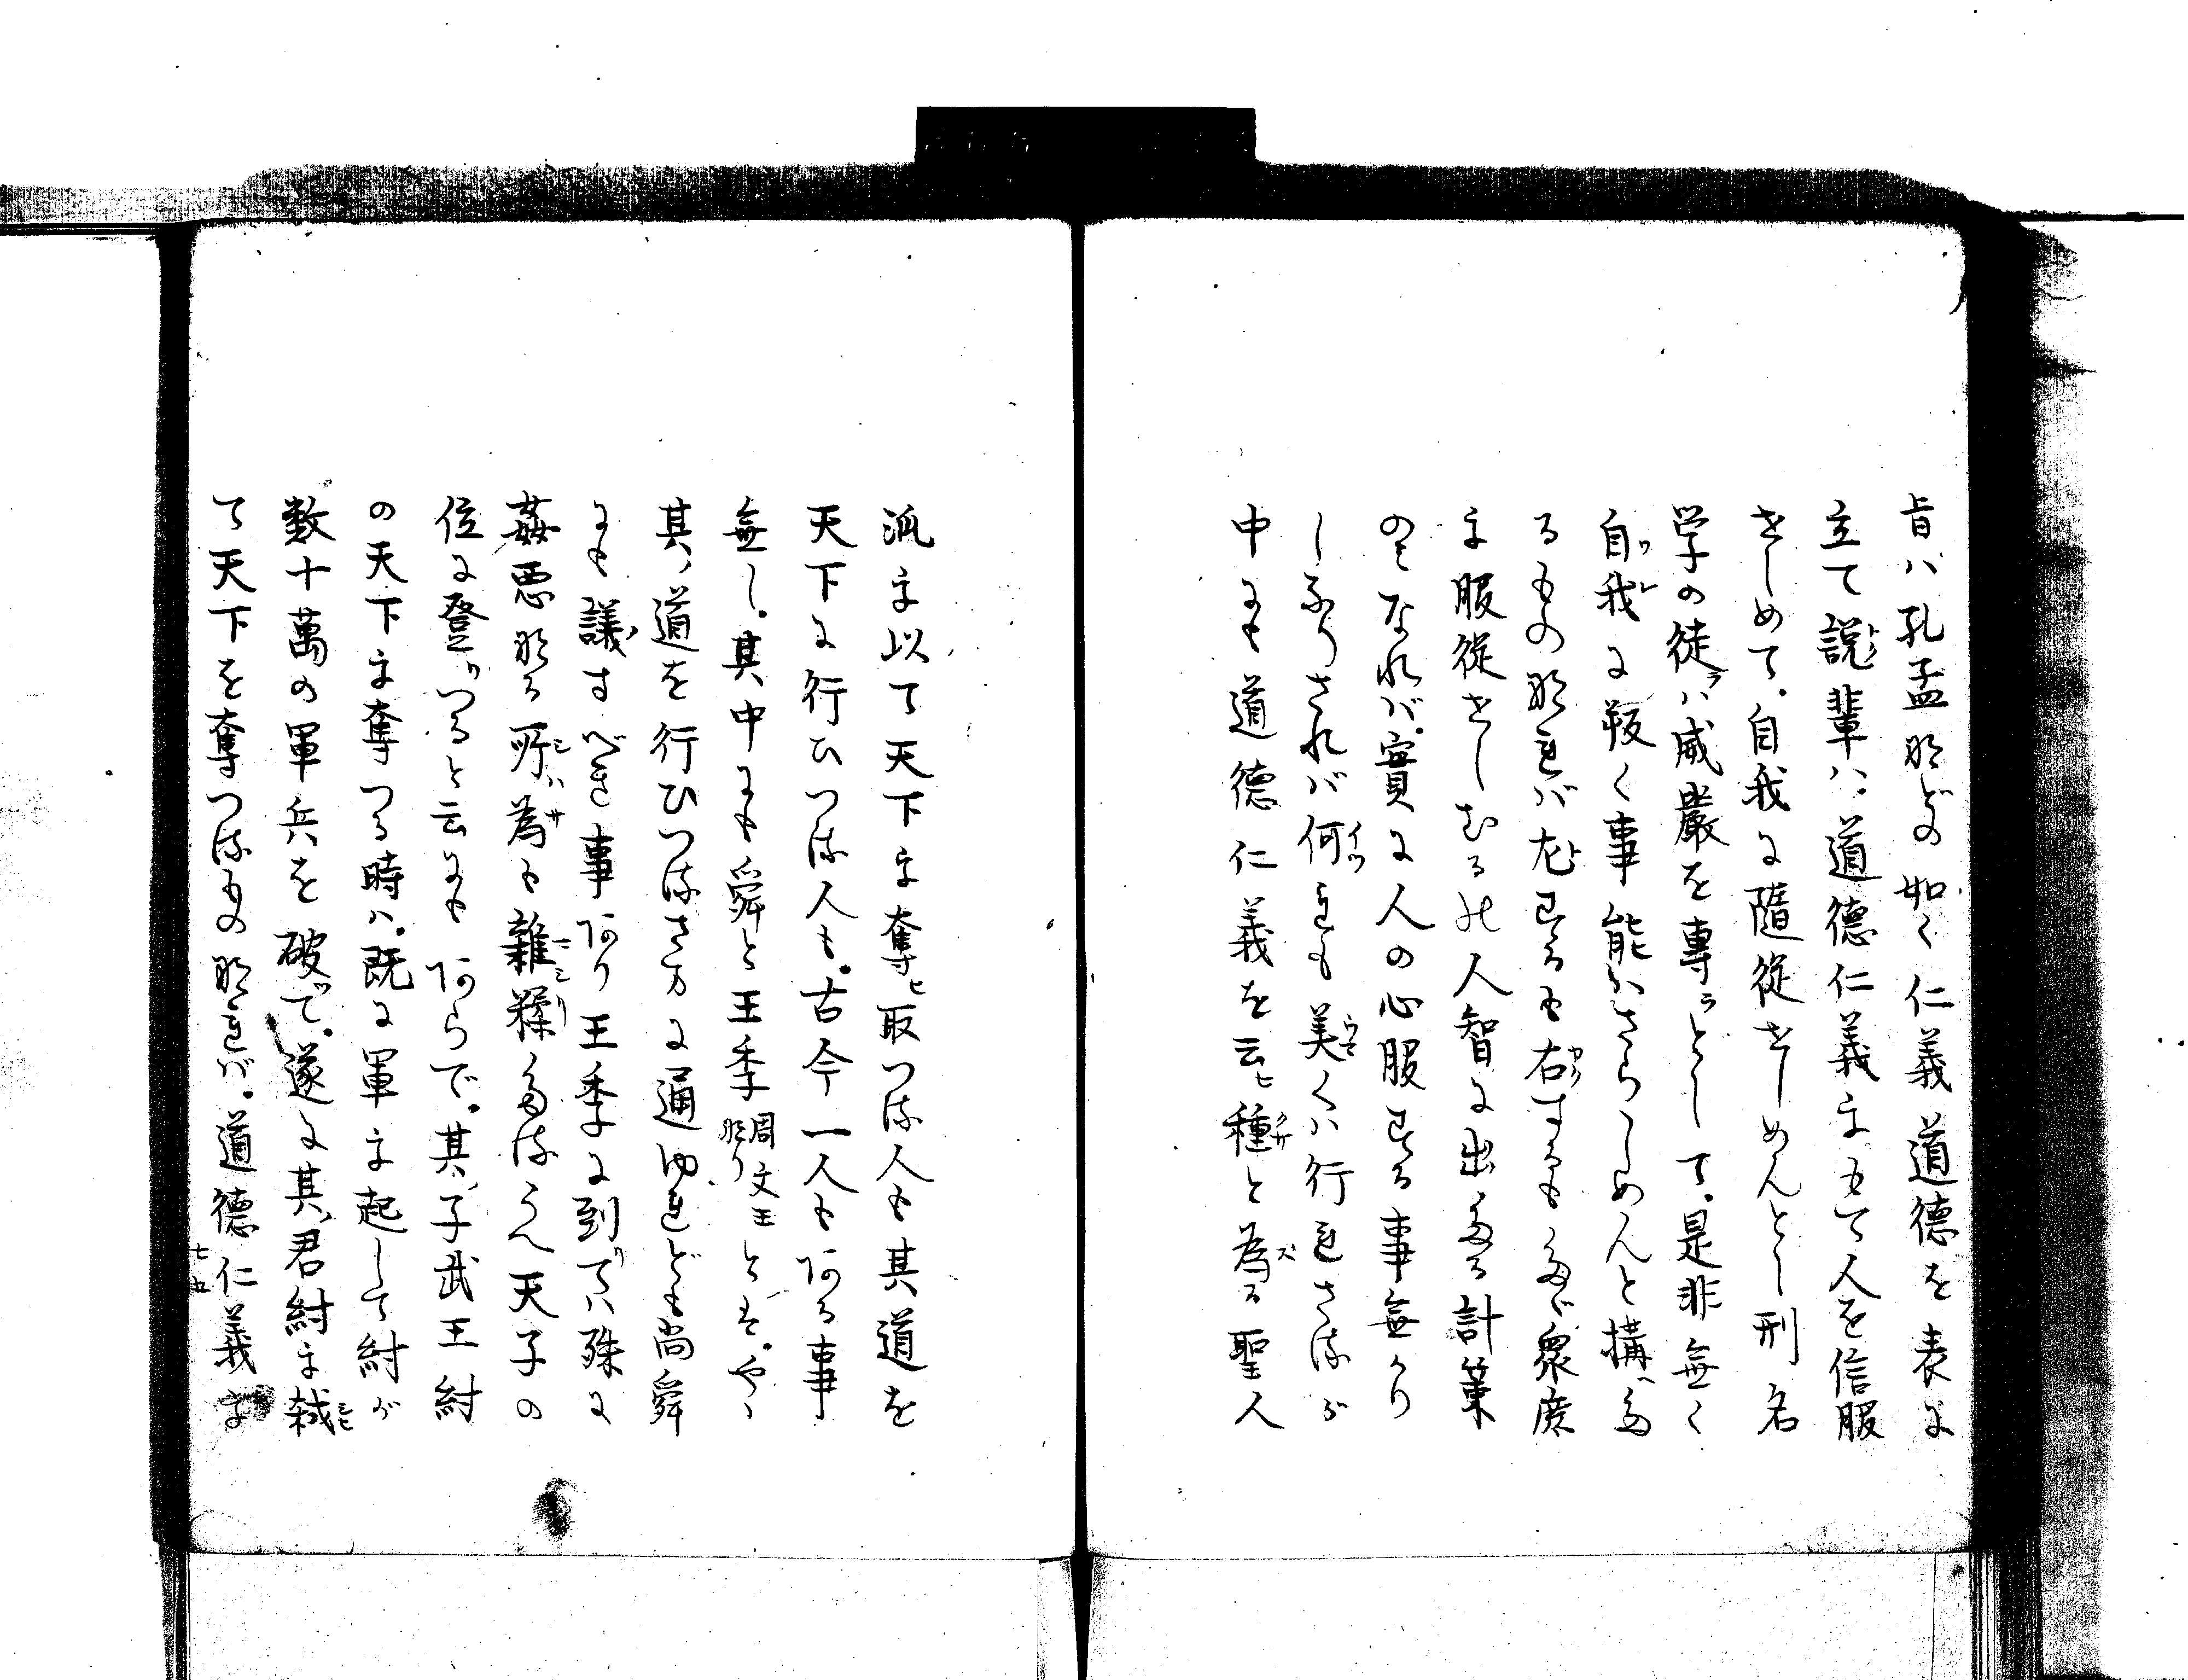 旨ハ孔孟などの如く仁義道德を表に
立て說輩ハ、道德仁義をもて人を信服
せしめて。自我に隨從せしめんとし刑名
学の徒ハ威嚴を專らとして。是非無く
自我に叛く事能ハざらしめんと構へた
るもの那れバ左するも右するもただ衆庶
を服從せしむるの人智に出たる計策
のみなれバ。實に人の心服する事無か
りしなりされバ何れも美くハ行れざるが
中にも道德仁義を云ひ種と為る聖人
派を以て天下を奪ひ取つる人も其道を
天下に行ひつる人も。古今一人もある事
無し。其中にも舜と王季周文王なりとぞ。やゝ
其道を行ひつるさまに通ゆれども尚舜
にも議すべき事あり王季に到りてハ殊に
姦悪なる所為も雜糅たるうへ天子の
位に登りつると云にもあらで。其子武王紂
の天下を奪つる時ハ。既に軍を起して紂が
数十萬の軍兵を破て。遂に其君紂を弑
て天下を奪つるもの那れバ。道德仁義を